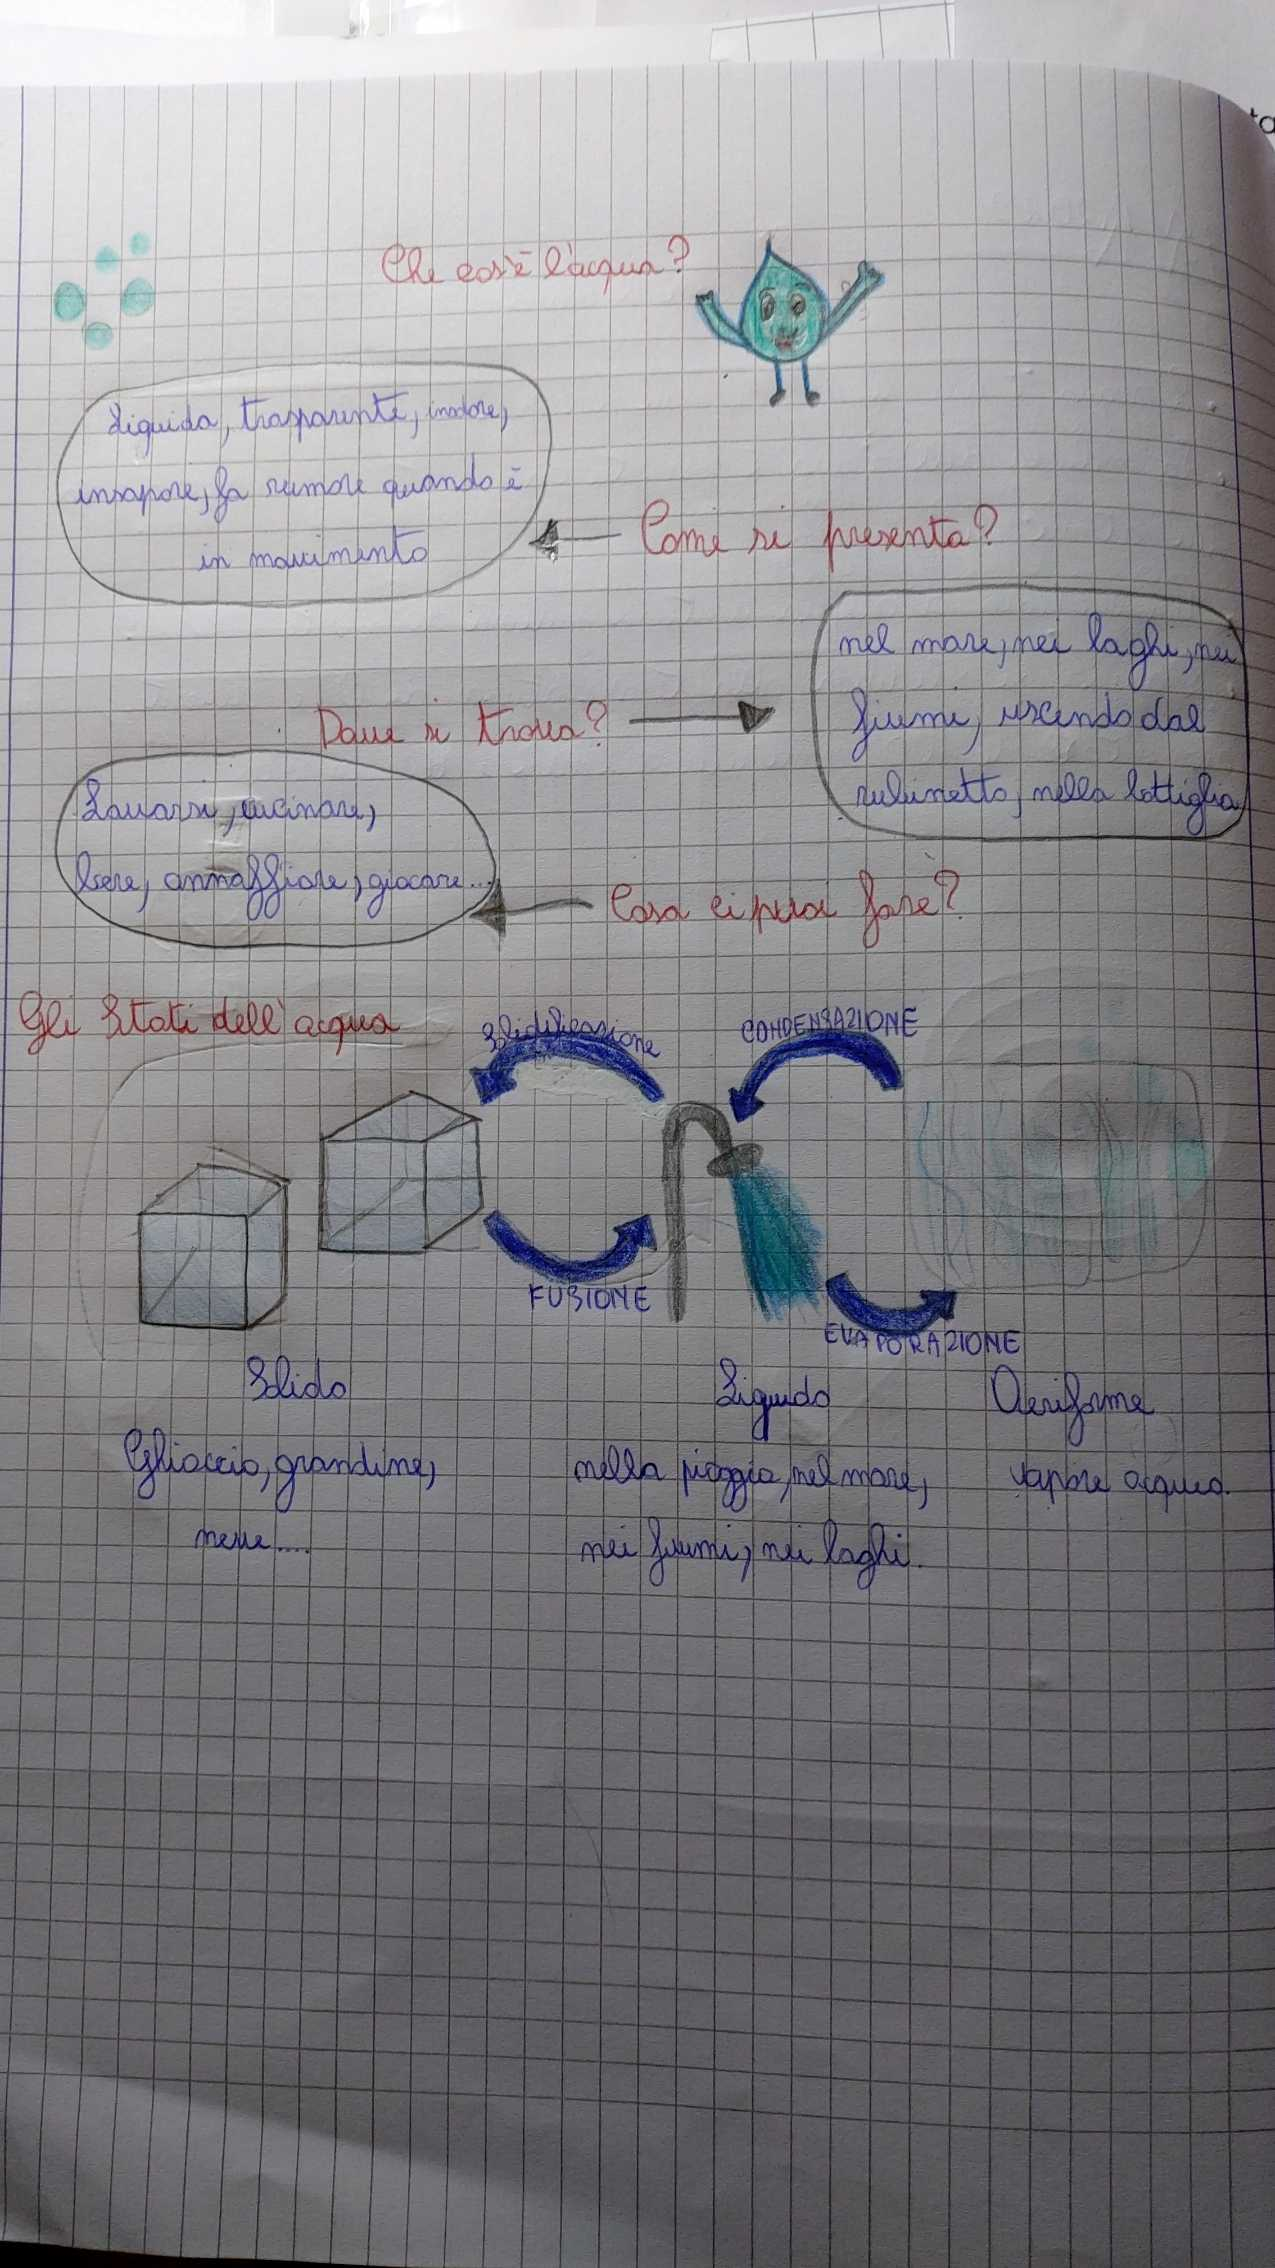 Che cos'è l'acqua?
Liquida, trasparente, inodore,
insapore, fa rumore quando è
in movimento
Come si presenta?
nel mare, nei laghi, nei
fiumi, uscendo dal
rubinetto, nella bottiglia
Dove si trova?
Lavarsi, cucinare,
bere, annaffiare, giocare...
Cosa ci puoi fare?
Gli Stati dell'acqua
Solidificazione
CONDENSAZIONE
FUSIONE
EVAPORAZIONE
Solido
Liquido
Aeriforme
Ghiaccio, grandine,
neve....
nella pioggia, nel mare,
nei fiumi, nei laghi.
vapore acqueo.